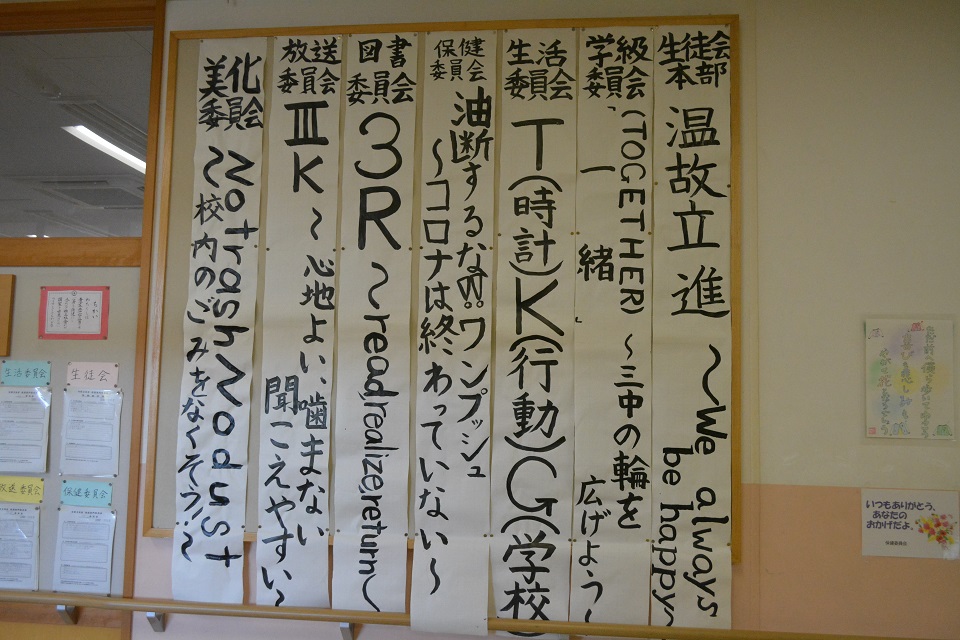 生徒会
本部
温故立進 〜We always
be happy〜
学級
委員会
一緒(TOGETHER)〜三中の輪を
広げよう〜
生活
委員会
T(時計)K(行動)G(学校)
保健
委員会
油断するな!!ワンプッシュ
〜コロナは終わっていない〜
図書
委員会
3R〜read,realize,return〜
放送
委員会
ⅢK〜心地よい、噛まない
聞こえやすい〜
美化
委員会
No trash No dust
〜校内のごみをなくそう!〜
生活委員会
生徒会
放送委員会
保健委員会
いつもありがとう、
あなたの
おかげだよ。